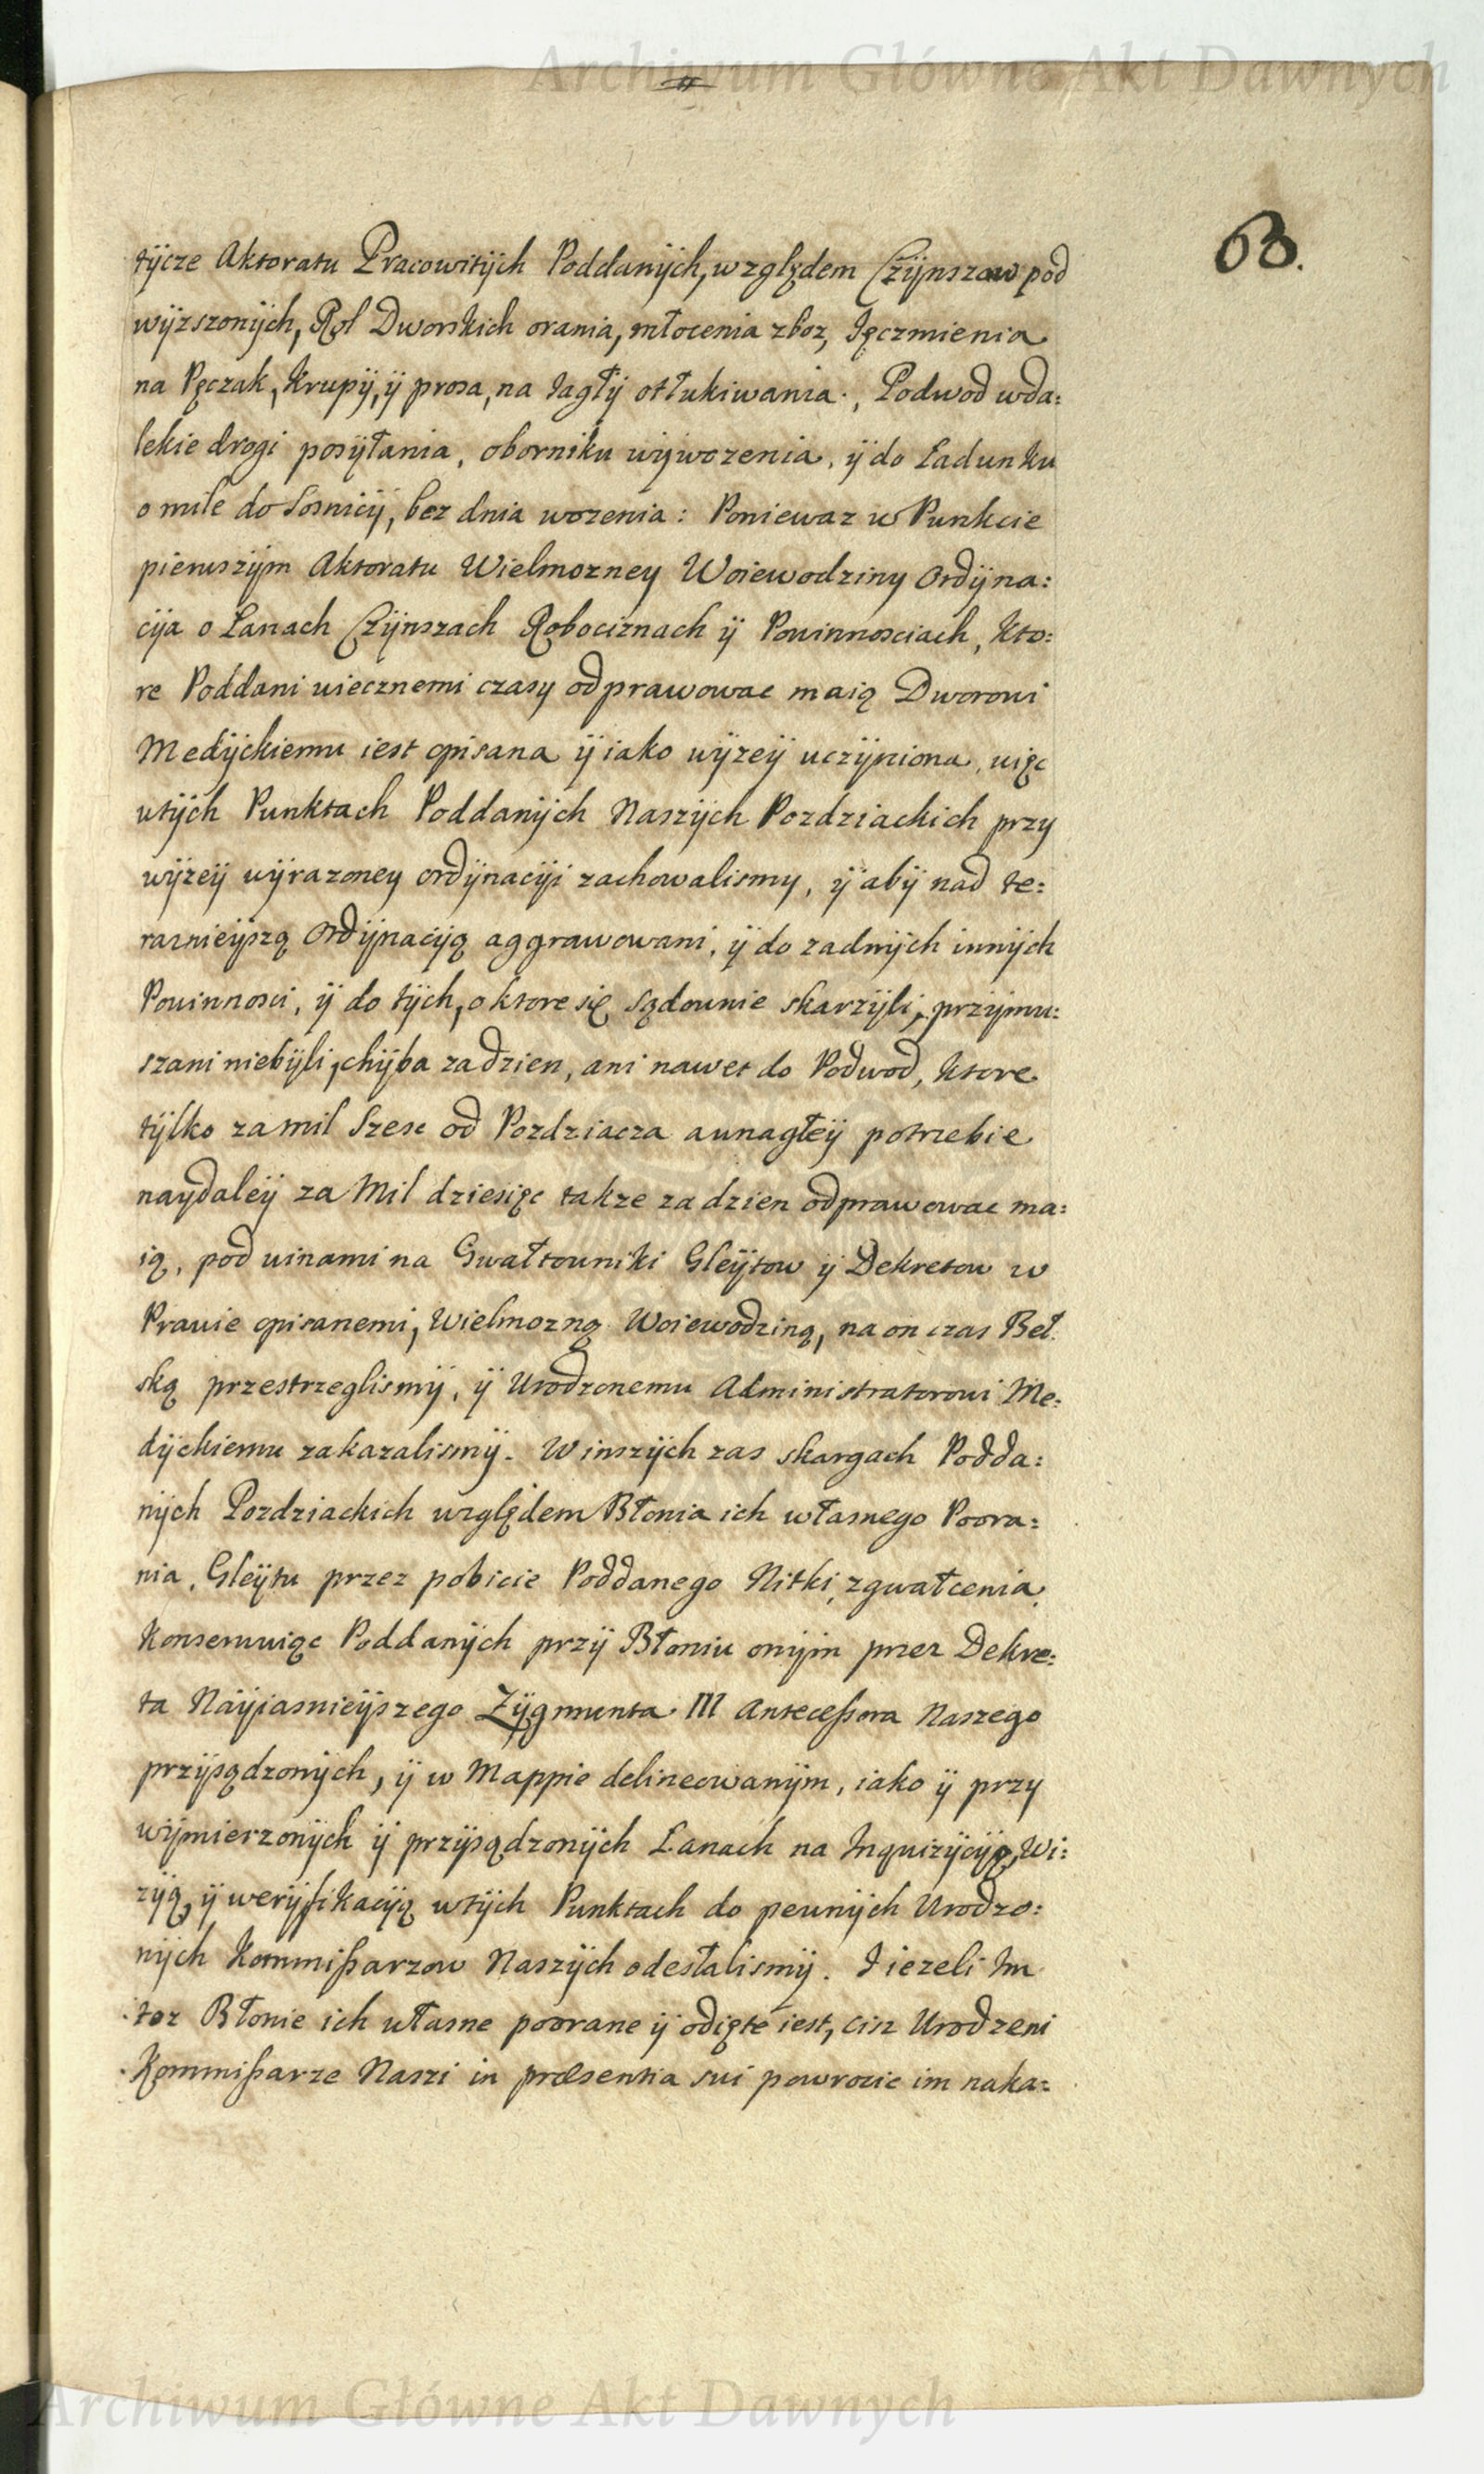 Archiwum Główne Akt Dawnych
63.
tÿcze Aktoratu Pracowitÿch Poddanÿch, względem Czÿnszow pod
wÿzszonÿch, Rol Dworskich orania, młocenia zboz, Jęczmienia
na Pęczak, Krupÿ, ÿ prosa, na Jagłÿ otłukiwania, Podwod wda:
lekie drogi posÿłania, oborniku wÿwozenia, ÿ do Ładunku
o mile do Sosnicÿ, bez dnia wozenia: Poniewaz w Punkcie
pierwszÿm Aktoratu Wielmozney Woiewodziny Ordÿna:
cÿa o Łanach Czÿnszach Robociznach ÿ Powinnosciach, kto:
re Poddani wiecznemi czasy odprawowac maią Dworowi
Medÿckiemu iest opisana ÿ iako wÿzeÿ uczÿniona, więc
wtÿch Punktach Poddanÿch Naszÿch Pozdziackich przy
wÿzeÿ wÿrazoney ordÿnacÿi zachowalismy, ÿ abÿ nad te:
raznieÿszą Ordÿnacÿą aggrawowani, ÿ do zadnÿch innÿch
Powinnosci, ÿ do tÿch, o ktore się sądownie skarzÿli, przÿmu:
szani niebÿli, chÿba za dzien, ani nawet do Podwod, ktore
tÿlko za mil szesc od Pozdziacza a wnagłeÿ potrzebie
naydaleÿ za Mil dziesięc takze za dzien odprawowac ma:
ią, pod winami na Gwałtowniki Gleÿtow ÿ Dekretow w
Prawie opisanemi, Wielmozną Woiewodziną, na on czas Beł
ską przestrzeglismÿ, ÿ Urodzonemu Administratorowi Me:
dÿckiemu zakazalismÿ. W inszÿch zas skargach Podda:
nÿch Pozdziackich względem Błonia ich własnego Poora:
nia, Gleÿtu przez pobicie Poddanego Nitki, zgwałcenia,
Konserwuiąc Poddanÿch przÿ Błoniu onÿm przez Dekre:
ta Naÿiasnieÿszego Zÿgmunta III Antecessora Naszego
przÿsądzonÿch, ÿ w Mappie delineowanÿm, iako ÿ przy
wÿmierzonÿch ÿ przÿsądzonÿch Łanach na Inquizÿcÿą, Wi:
zÿą, ÿ werÿfikacÿą wtÿch Punktach do pewnÿch Urodzo:
nÿch Kommissarzow Naszÿch odesłalismÿ. I iezeli im
toz Błonie ich własne poorane ÿ odięte iest, ciz Urodzeni
Kommissarze Naszi in præsentia sui powrocic im naka:
Archiwum Główne Akt Dawnych